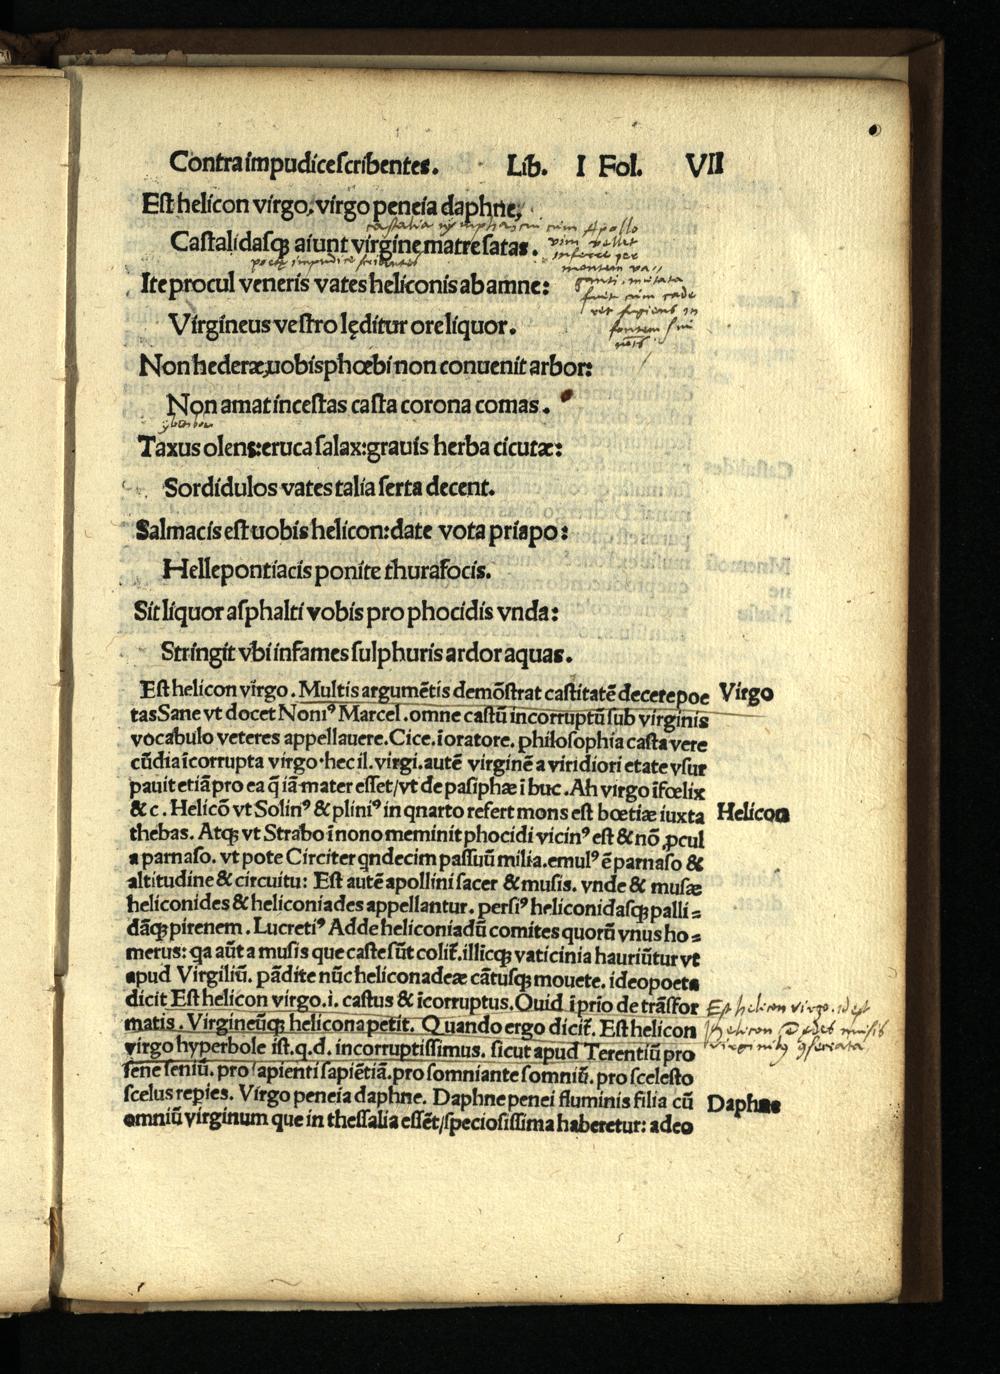 Contra impudice scribentes. Lib. I Fol. VII
Est helicon virgo, virgo peneia daphne,
castalia nympha cum Apollo
Castalidasqꝫ aiunt virgine matre satas.
vim vellet
inferre per
poetę impudice scribentes
montem va//
Ite procul veneris vates heliconis ab amne:
ganti, mutata
fuit cum cade
ret fugiens in
Virgineus vestro lęditur ore liquor.
fontem sui
nois
Non hederæ, uobis phœbi non conuenit arbor:
Non amat incestas casta corona comas.
Taxus olens: eruca salax: grauis herba cicutæ:
Sordidulos vates talia serta decent.
Salmacis est uobis helicon: date vota priapo:
Hellepontiacis ponite thura focis.
Sit liquor asphalti vobis pro phocidis vnda:
Stringit vbi infames sulphuris ardor aquas.
Est helicon virgo. Multis argumētis demōstrat castitatē decere poe Virgo
tas Sane vt docet Noniꝰ Marcel. omne castū incorruptū sub virginis
vocabulo veteres appellauere. Cice. ī oratore. philosophia casta vere
cūdia īcorrupta virgo. hec il. virgi. autē virginē a viridiori etate vsur
pauit etiā pro ea q̄ iā mater esset/vt de pasiphæ ī buc. Ah virgo īfœlix
& c. Helicō vt Solinꝰ & pliniꝰ in qnarto refert mons est bœtiæ iuxta Helicon
thebas. Atqꝫ vt Strabo ī nono meminit phocidi vicinꝰ est & nō ꝓcul
a parnaso. vt pote Circiter qndecim passuū milia. emulꝰ ē parnaso &
altitudine & circuitu: Est autē apollini sacer & musis. vnde & musæ
heliconides & heliconiades appellantur. persiꝰ heliconidasqꝫ palli=
dāqꝫ pirenem. Lucretiꝰ Adde heliconiadū comites quorū vnus ho=
merus: qa aūt a musis que caste sūt colit̄. illicqꝫ vaticinia hauriūtur vt
apud Virgiliū. pādite nūc helicona deæ cātusqꝫ mouete. ideo poeta
dicit Est helicon virgo. i. castus & īcorruptus. Ouid ī prīo de trāsfor
matis. Virgineūqꝫ helicona petit. Quando ergo dicit̄. Est helicon
virgo hyperbole ist. q. d. incorruptissimus. sicut apud Terentiū pro
sene seniū. pro sapienti sapiētiā. pro somniante somniū. pro scelesto
scelus repies. Virgo peneia daphne. Daphne penei fluminis filia cū Daphne
omniū virginum que in thessalia essēt/speciosissima haberetur: adeo
Est helicon virgo. id est
helicon musis
virginibꝰ ꝯsecrata